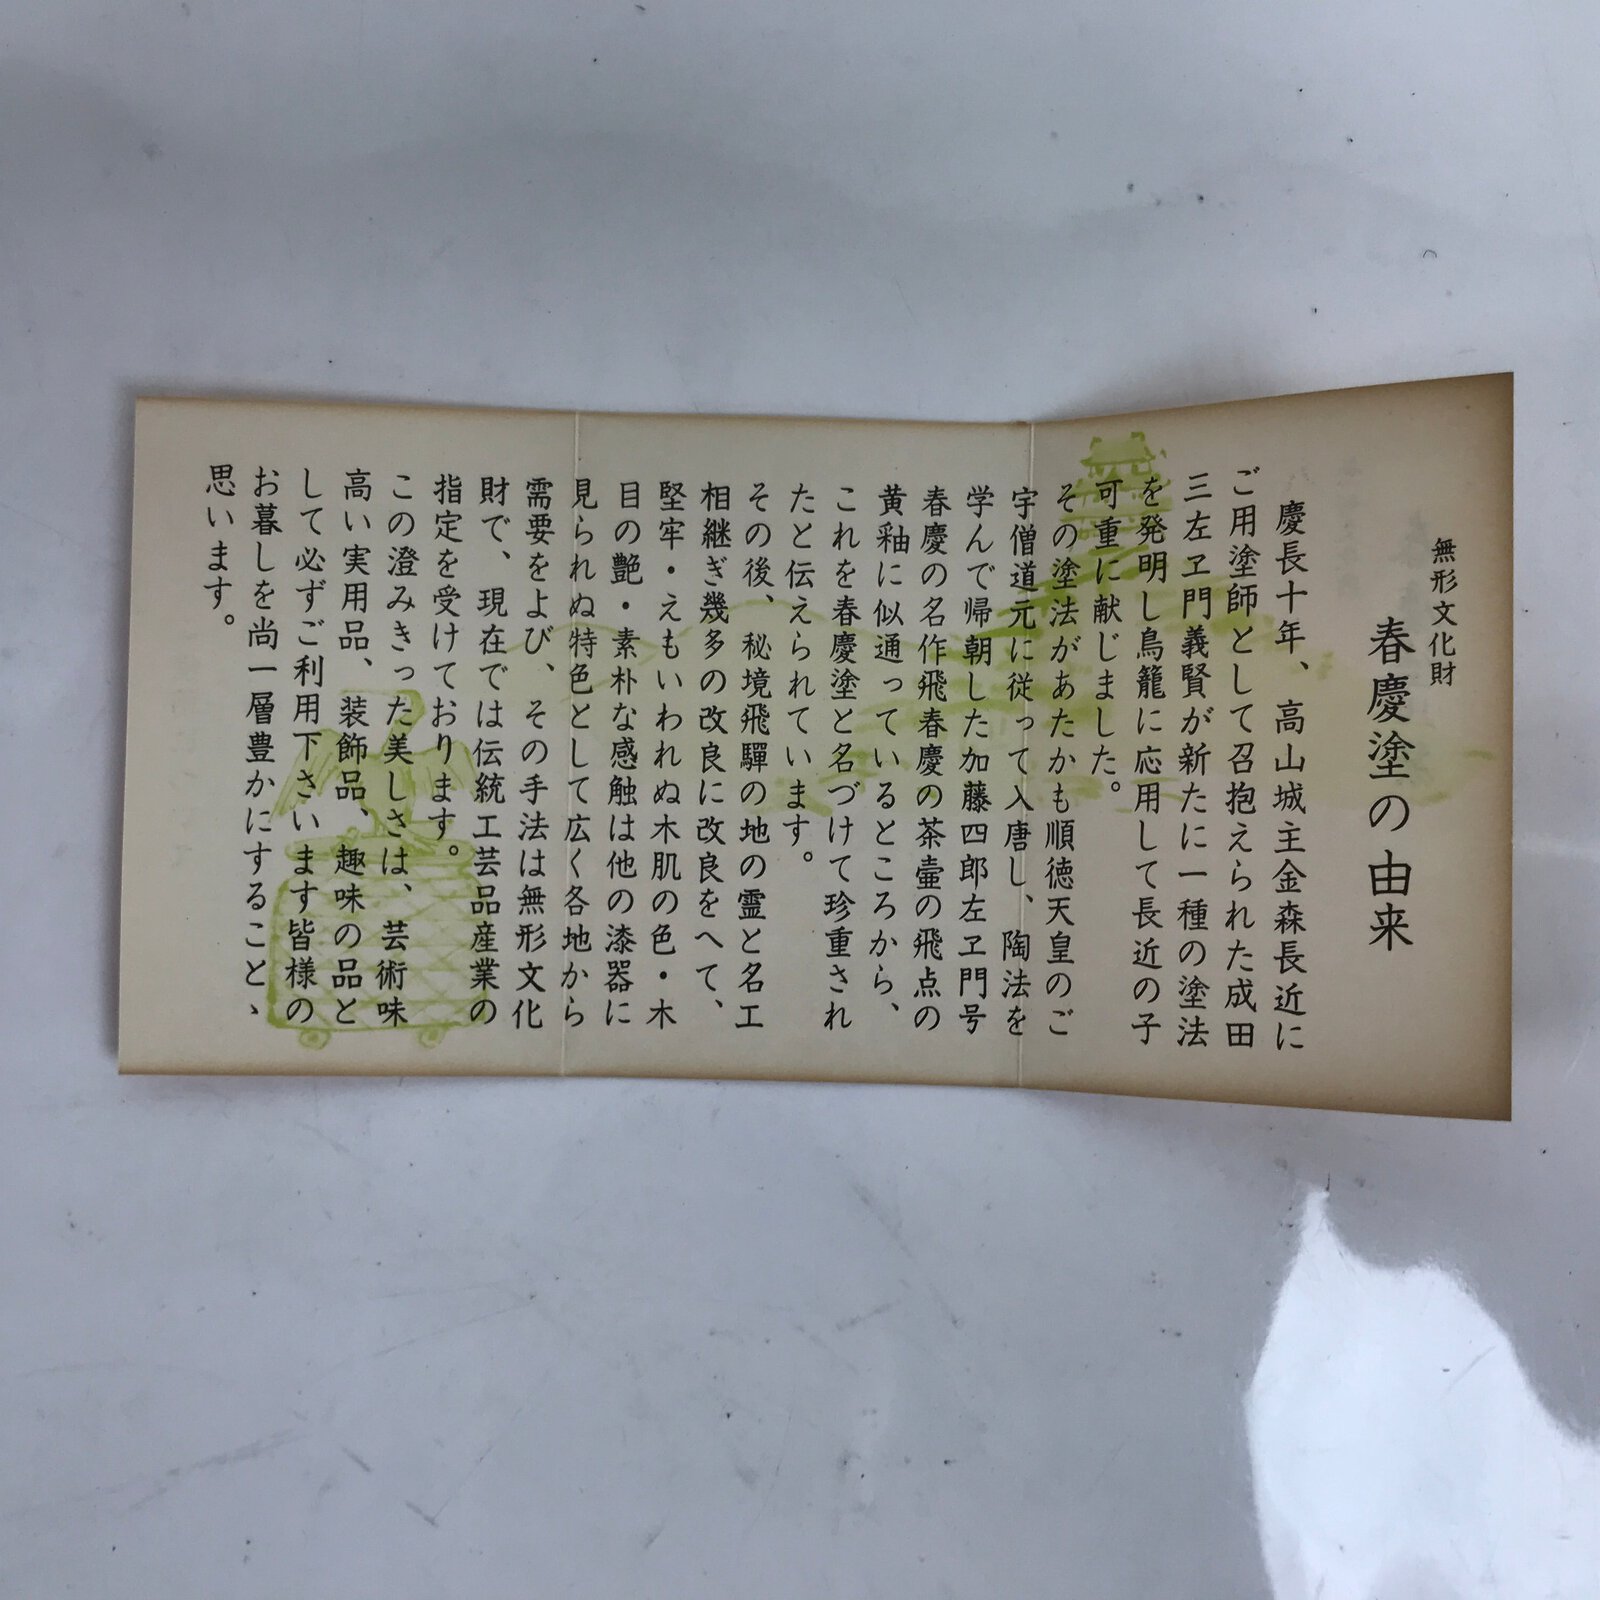 無形文化財
春慶塗の由来
慶長十年、高山城主金森長近に
ご用塗師として召抱えられた成田
三左ヱ門義賢が新たに一種の塗法
を発明し鳥籠に応用して長近の子
可重に献じました。
その塗法があたかも順徳天皇のご
宇僧道元に従って入唐し、陶法を
学んで帰朝した加藤四郎左ヱ門号
春慶の名作飛春慶の茶壷の飛点の
黄釉に似通っているところから、
これを春慶塗と名づけて珍重され
たと伝えられています。
その後、秘境飛騨の地の霊と名工
相継ぎ幾多の改良に改良をへて、
堅牢・えもいわれぬ木肌の色・木
目の艶・素朴な感触は他の漆器に
見られぬ特色として広く各地から
需要をよび、その手法は無形文化
財で、現在では伝統工芸品産業の
指定を受けております。
この澄みきった美しさは、芸術味
高い実用品、装飾品、趣味の品と
して必ずご利用下さいます皆様の
お暮しを尚一層豊かにすること、
思います。